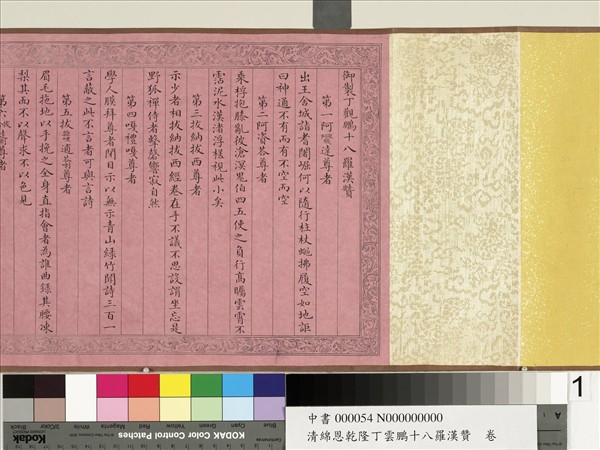 御製丁觀鵬十八羅漢贊
第一阿迎達尊者
出王舍城詣耆闍崛何以隨行拄杖蠅拂履空如地詎
曰神通不有而有不空而空
第二阿資荅尊者
乘桴抱膝亂彼滄溟畏伯四五使之負行高矚雲霄不
霑泥水漢渚浮槎視此小矣
第三拔納拔西尊者
示少者相拔納拔西經卷在手不議不思設謂坐忘是
野狐禪侍者蜂磬響寂自然
第四嘎禮嘎尊者
學人膜拜尊者閒目示以無示青山綠竹聞詩三百一
言蔽之此不言者可與言詩
第五拔 通荅尊者
眉毛拖地以手挽之全身直指會者為誰曲錄其腰凍
梨其面不以聲求不以色見
第六 尊者
1
中書 000054 N000000000
清綿恩乾隆丁雲鵬十八羅漢贊 卷
KODAK Color Control Patches
Kodak
Blue Cyan Green Yellow Red Magenta White 3/Color Black
A